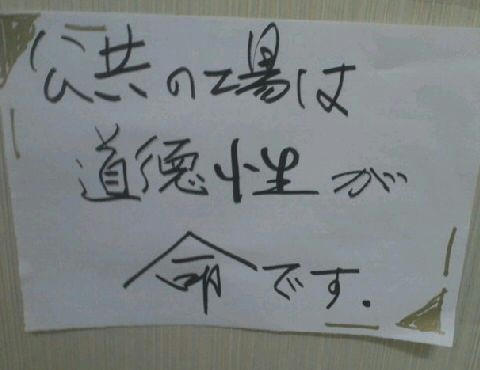 公共の場は
道徳性が
命です.